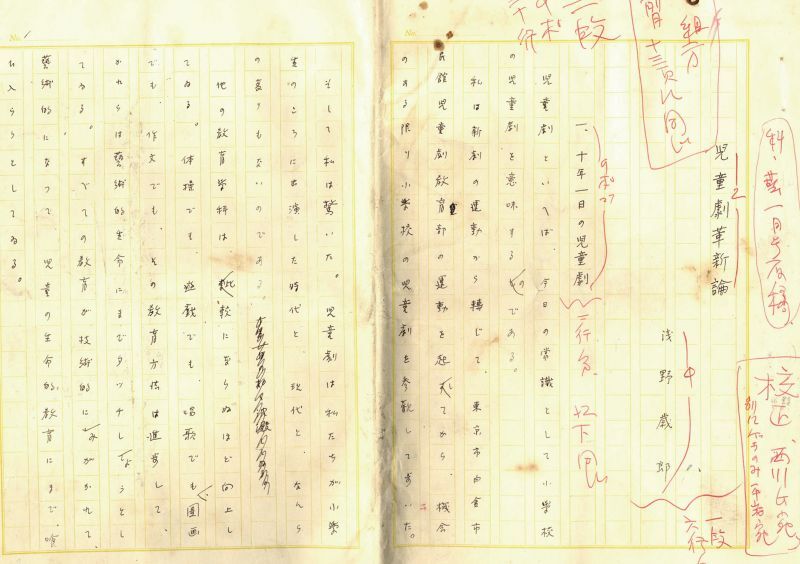 科・藝一月号原稿
校正 西川氏宛
児童劇革新論
浅野歳郎
組方
二段
一、十年一日の児童劇
9ポ27
二行分 以下同じ
児童劇といへば、今日の常識として小学校
の児童劇を意味するのである。
私は新劇の運動から轉じて、東京市内倉市
民館児童劇教育部の運動を起してから、機会
のある限り小学校の児童劇を参観してまいった。
No. 1
そして私は驚いた。児童劇は私たちが小学
生のころに出演した時代と、現代と、なんら
の変りもないのである。
他の教育学科は、比較にならぬほど向上し
てゐる。体操でも、遊戯でも、唱歌でも、圖画
でも、作文でも、その教育方法は進歩して、
かれらは藝術的生命にまでタッチしようとし
てゐる。すべての教育が技術的にみがかれて、
藝術的になって、児童の生命的教育にまで、喰
ひ入らうとしてゐる。